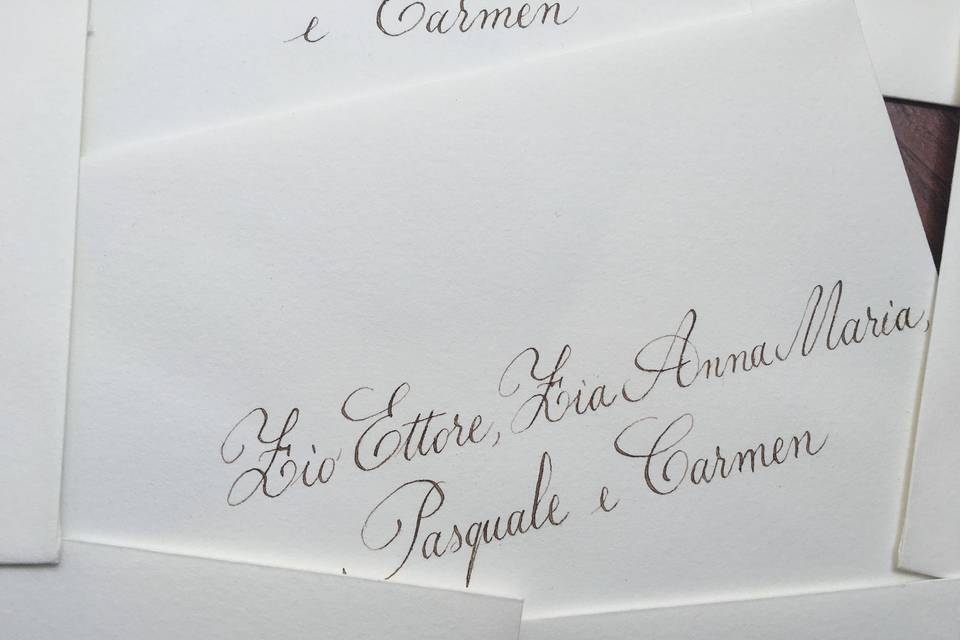 e Carmen
Zio Ettore, Zia Anna Maria,
Pasquale e Carmen